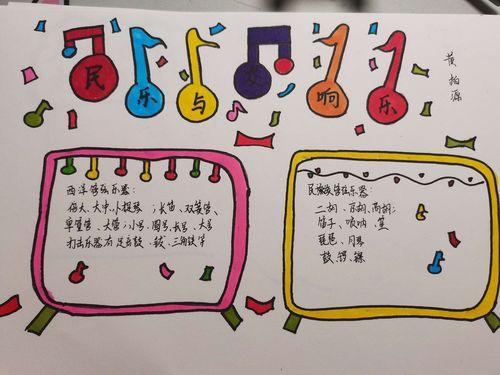 民乐与交响乐
黄柏源
西洋管弦乐器:
倍大、大中、小提琴;长笛、双簧管、
单簧管、大管;小号、圆号、长号、大号
打击乐器有定音鼓、钹、三角铁等
民族管弦乐器:
二胡、京胡、高胡;
笛子、唢呐、笙
琵琶、月琴
鼓、锣、镲